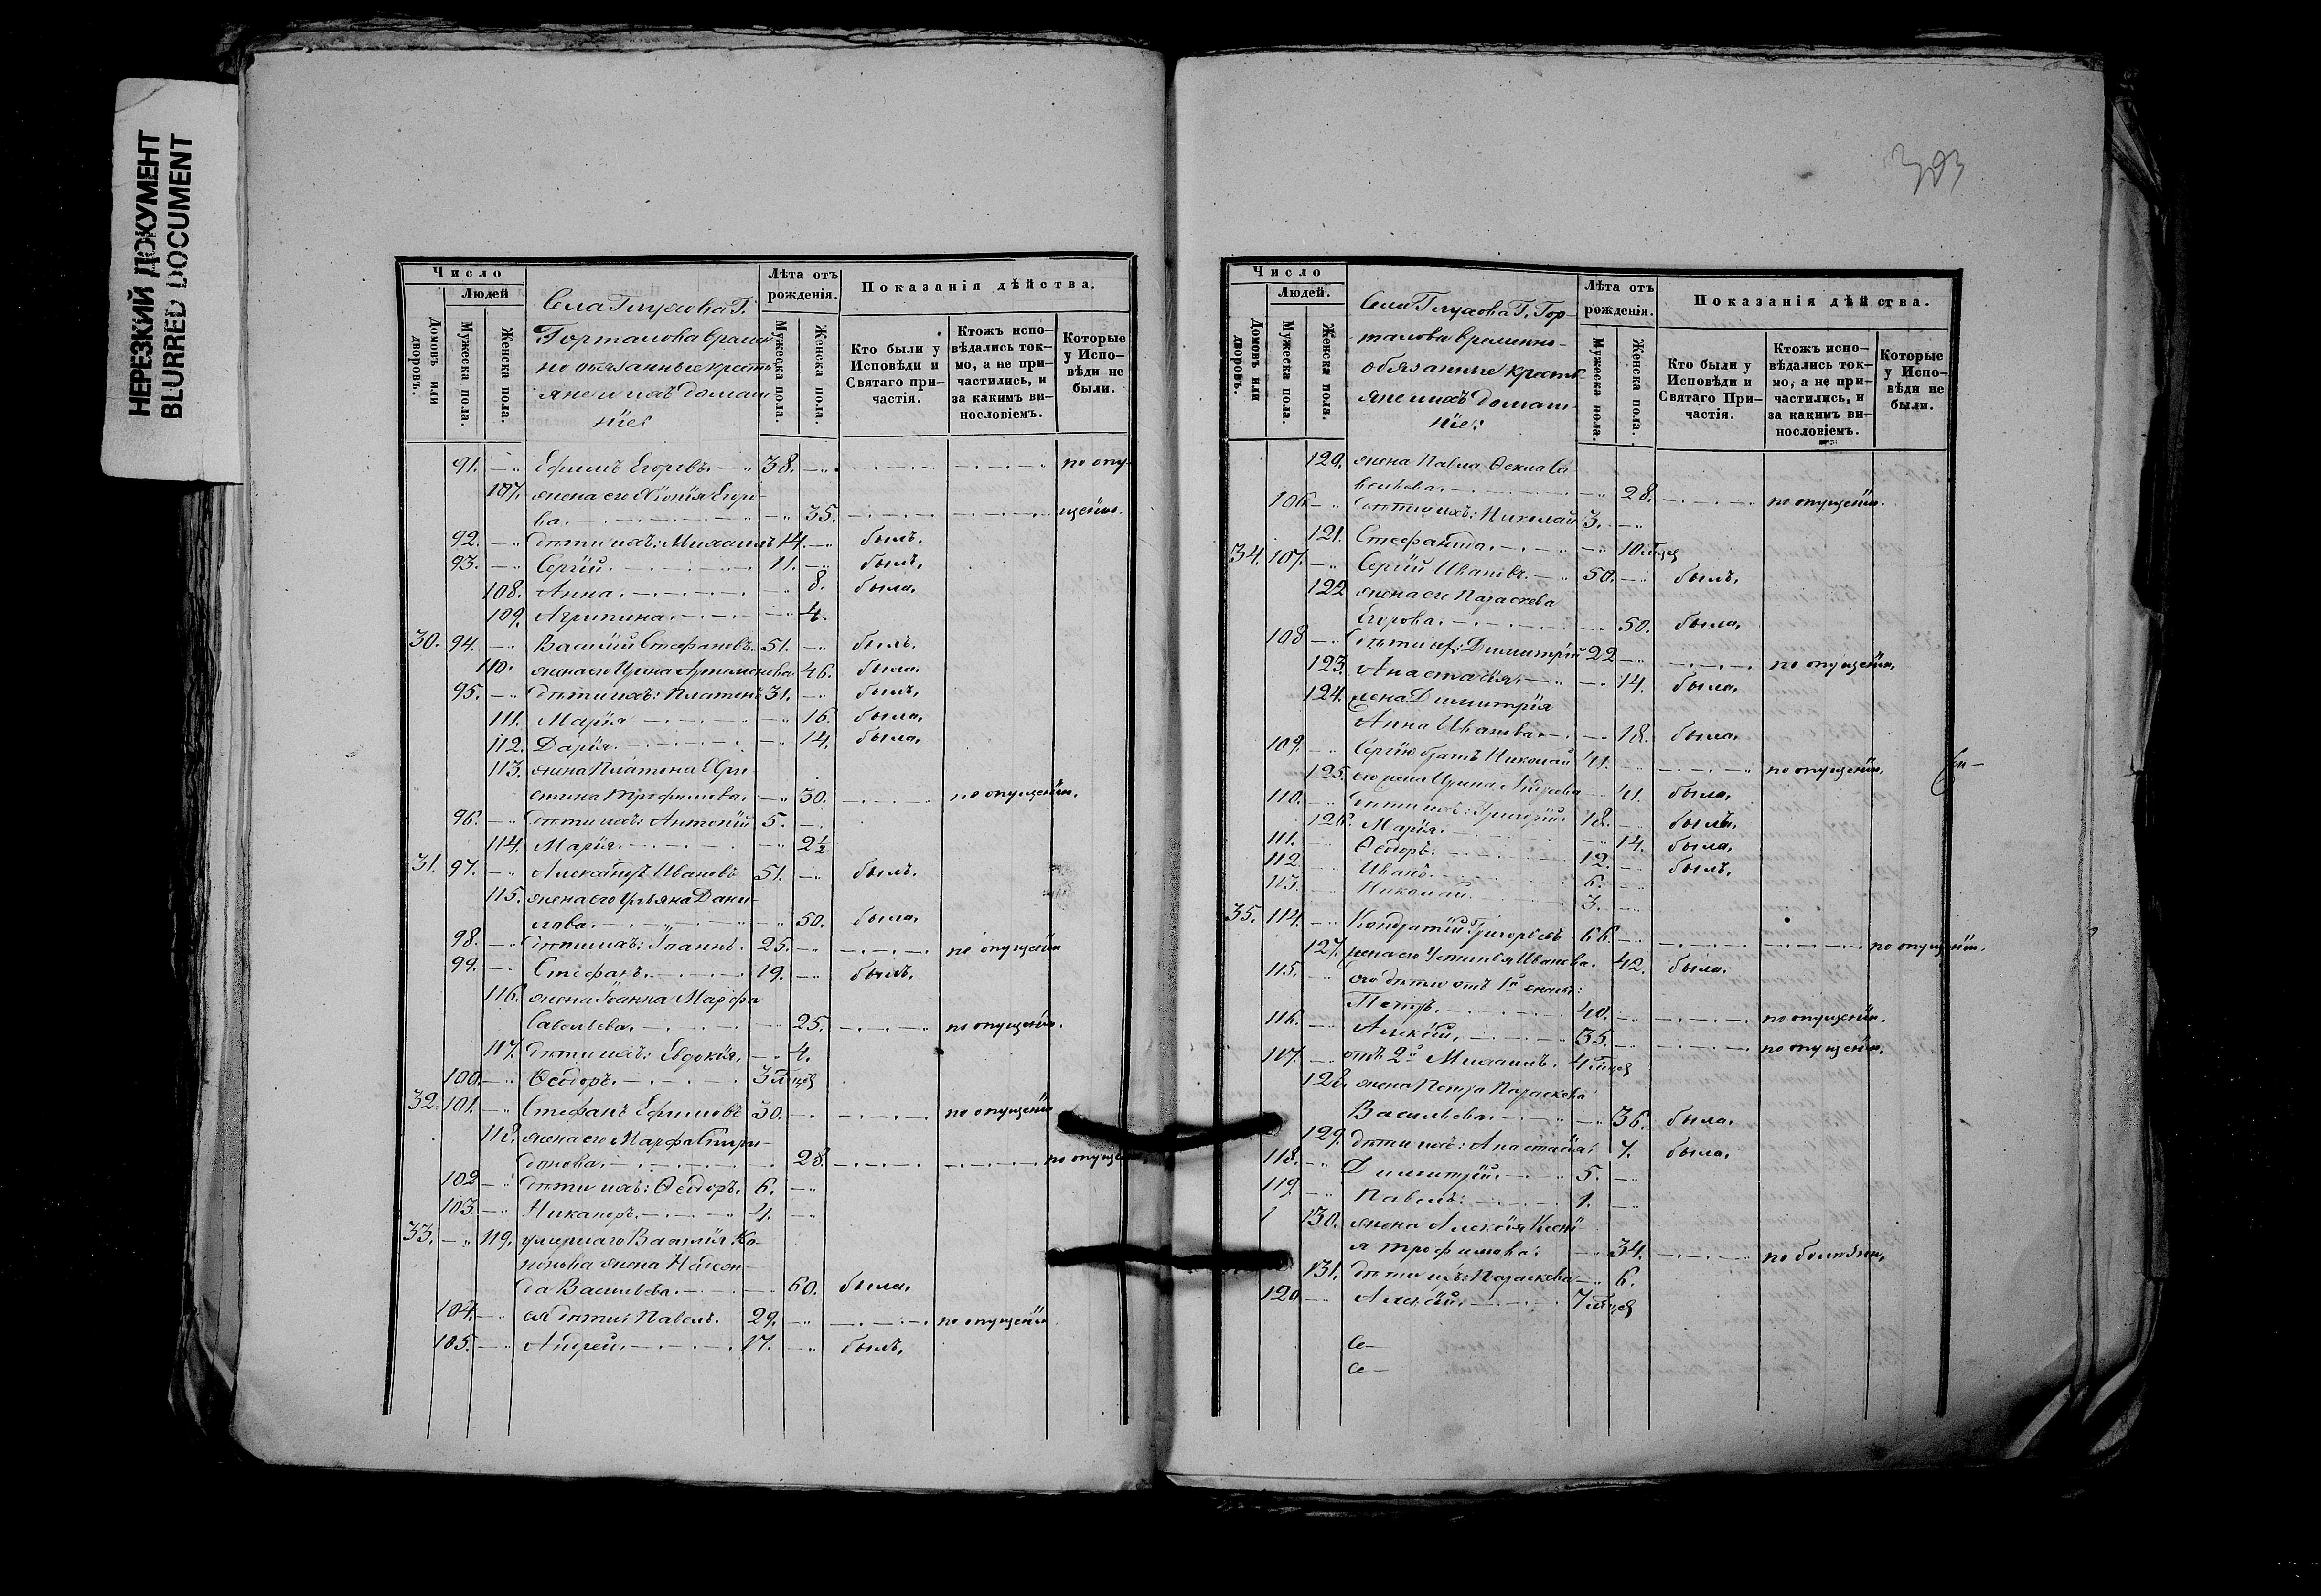 НЕРЕЗКИЙ ДОКУМЕНТ
BLURRED DOCUMENT
Число
Людей
Домовъ или дворовъ.
Мужеска пола.
Женска пола.
Села Глухова Г.
Горталова времен
но обязанные кресть
яне и ихъ домаш
ніе:
Лѣта отъ рожденія.
Мужеска пола.
Женска пола.
Показанія дѣйства.
Кто были у Исповѣди и Святаго причастія.
Ктожъ исповѣдались токмо, а не причастились, и за какимъ винословіемъ.
Которые у Исповѣди не были.
91. Ефимъ Егоровъ. 38. по опу-
107. жена его Хіонія Егоро-
ва. 35. щенію.
92. дѣти ихъ: Михаилъ 14. былъ.
93. Сергій. 11. былъ.
108. Анна. 8. была.
109. Агрипина. 4.
30. 94. Василій Стефановъ. 51. былъ.
110. жена его Ирина Артемонова 46. была.
95. дѣти ихъ: Платонъ 31. былъ.
111. Марія 16. была.
112. Дарія. 14. была.
113. жена Платона
Трофимова. 30. по опущенію.
96. дѣти ихъ: Антоній 5.
114. Марія. 2½
31. 97. Александръ Ивановъ 51. былъ.
115. жена его Ульяна Дани-
лова. 50. была.
98. дѣти ихъ: Іоаннъ. 25. по опущенію
99. Стефанъ. 19. былъ.
116. жена Іоанна Марфа
Савельева. 25. по опущенію.
117. дѣти ихъ: Евдокія. 4.
100. Ѳеодоръ. 3 мѣсцев
32. 101. Стефанъ Ефимовъ 30. по опущенію
118. жена его Марфа Спири-
донова. 28. по опущен
102 дѣти ихъ: Ѳеодоръ. 6.
103. Никаноръ. 4.
33. 119. умершаго Василія Ко-
нонова жена Надеж-
да Васильева. 60. была.
104. ея дѣти: Павелъ. 29. по опущенію
105. Андрей. 17. былъ.
303
Число
Людей.
Домовъ или дворовъ.
Мужеска пола.
Женска пола.
Села Глухова Г. Гор-
талова временно-
обязанные кресть
яне и ихъ домаш-
ніе:
Лѣта отъ рожденія.
Мужеска пола.
Женска пола.
Показанія дѣйства.
Кто были у Исповѣди и Святаго Причастія.
Ктожъ исповѣдались токмо, а не причастились, и за какимъ винословіемъ.
Которые у Исповѣди не были.
120. жена Павла Ѳекла Са
вельева. 28. по опущенію.
106 дѣти ихъ: Николай 3.
121. Стефанида. 10 мѣсцев
34. 107. Сергій Ивановъ. 50. былъ.
122 жена его Параскева
Егорова. 50. была.
108 дѣти их: Димитрій 22 по опущенію.
123. Анастасія. 14. была.
124. жена Димитрія
Анна Иванова. 18. была.
109. Сергію братъ Николай 41. по опущенію.
125. его жена Ирина Андреева 41. была.
110. дѣти ихъ: Григорій. 18. былъ.
126. Марія. 14. была.
111. Ѳеодоръ. 12. былъ.
112. Иванъ. 6.
113. Николай. 3.
35. 114. Кондратій Григорьевъ 66. по опущенію.
127. жена его Устинья Иванова. 42. была.
115. его дѣти отъ 1й жены:
Петръ. 40. по опущенію.
116. Алексѣй. 35. по опущенію.
117. отъ 2й Михаилъ. 4 мѣсцев
128. жена Петра Параскева
Васильева. 36. была.
129. дѣти ихъ: Анастасія. 7. была.
118. Димитрій. 5.
119. Павелъ. 1.
130. жена Алексѣя Ксені
я Трофимова. 34. по болѣзни.
131. дѣти ихъ: Параскева 6.
120 Алексѣй. 7 мѣсцев
Се-
Се-